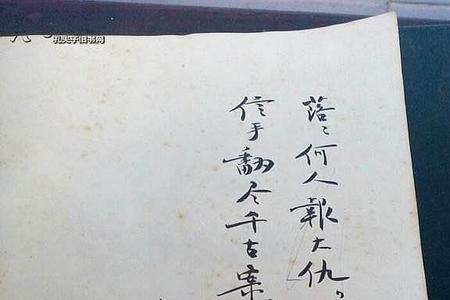 落〻何人報大仇
信手翻尽千古案
孔夫子旧书网